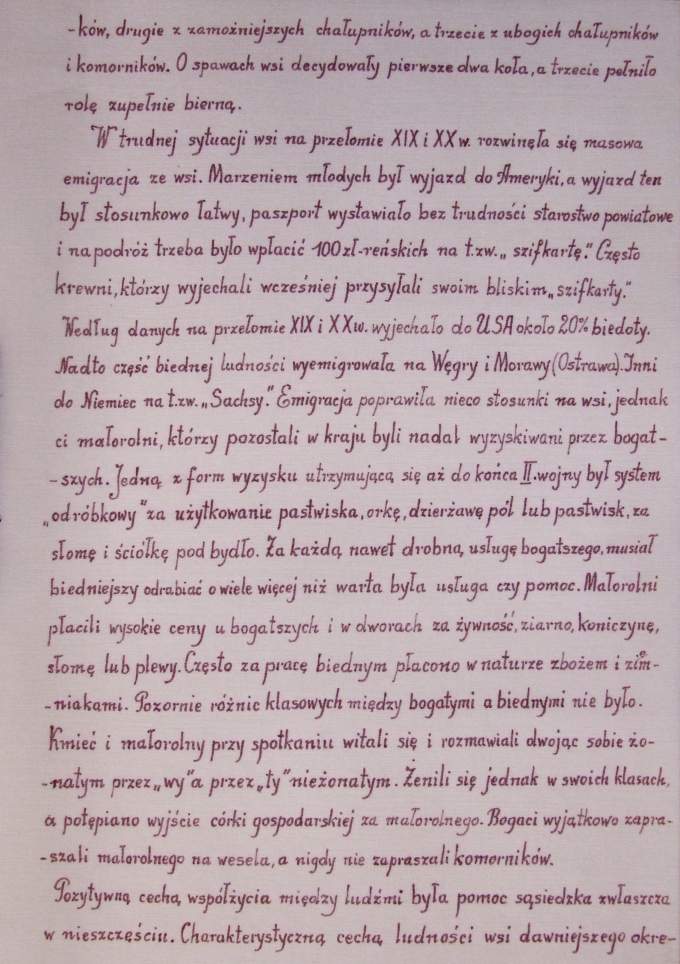 -ków, drugie z zamożniejszych chałupników, a trzecie z ubogich chałupników
i komorników. O spawach wsi decydowały pierwsze dwa koła, a trzecie pełniło
rolę zupełnie bierną.
W trudnej sytuacji wsi na przełomie XIX i XX w. rozwinęła się masowa
emigracja ze wsi. Marzeniem młodych był wyjazd do Ameryki, a wyjazd ten
był stosunkowo łatwy, paszport wystawiało bez trudności starostwo powiatowe
i na podróż trzeba było wpłacić 100 zł-reńskich na t.zw. „szifkartę". Często
krewni, którzy wyjechali wcześniej przysyłali swoim bliskim „szifkarty."
Według danych na przełomie XIX i XX w. wyjechało do USA około 20% biedoty.
Nadto część biednej ludności wyemigrowała na Węgry i Morawy (Ostrawa). Inni
do Niemiec na t.zw. „Sachsy". Emigracja poprawiła nieco stosunki na wsi, jednak
ci małorolni, którzy pozostali w kraju byli nadal wyzyskiwani przez bogat-
-szych. Jedną z form wyzysku utrzymującą się aż do końca II. wojny był system
„odróbkowy" za użytkowanie pastwiska, orkę, dzierżawę pól lub pastwisk, za
słomę i ściółkę pod bydło. Za każdą nawet drobną usługę bogatszego, musiał
biedniejszy odrabiać o wiele więcej niż warta była usługa czy pomoc. Małorolni
płacili wysokie ceny u bogatszych i w dworach za żywność, ziarno, koniczynę,
słomę lub plewy. Często za pracę biednym płacono w naturze zbożem i ziem-
-niakami. Pozornie różnic klasowych między bogatymi a biednymi nie było.
Kmieć i małorolny przy spotkaniu witali się i rozmawiali dwojąc sobie żo-
-natym przez „wy" a przez „ty" nieżonatym. Żenili się jednak w swoich klasach,
a potępiano wyjście córki gospodarskiej za małorolnego. Bogaci wyjątkowo zapra-
-szali małorolnego na wesela, a nigdy nie zapraszali komorników.
Pozytywną cechą współżycia między ludźmi była pomoc sąsiedzka zwłaszcza
w nieszczęściu. Charakterystyczną cechą ludności wsi dawniejszego okre-